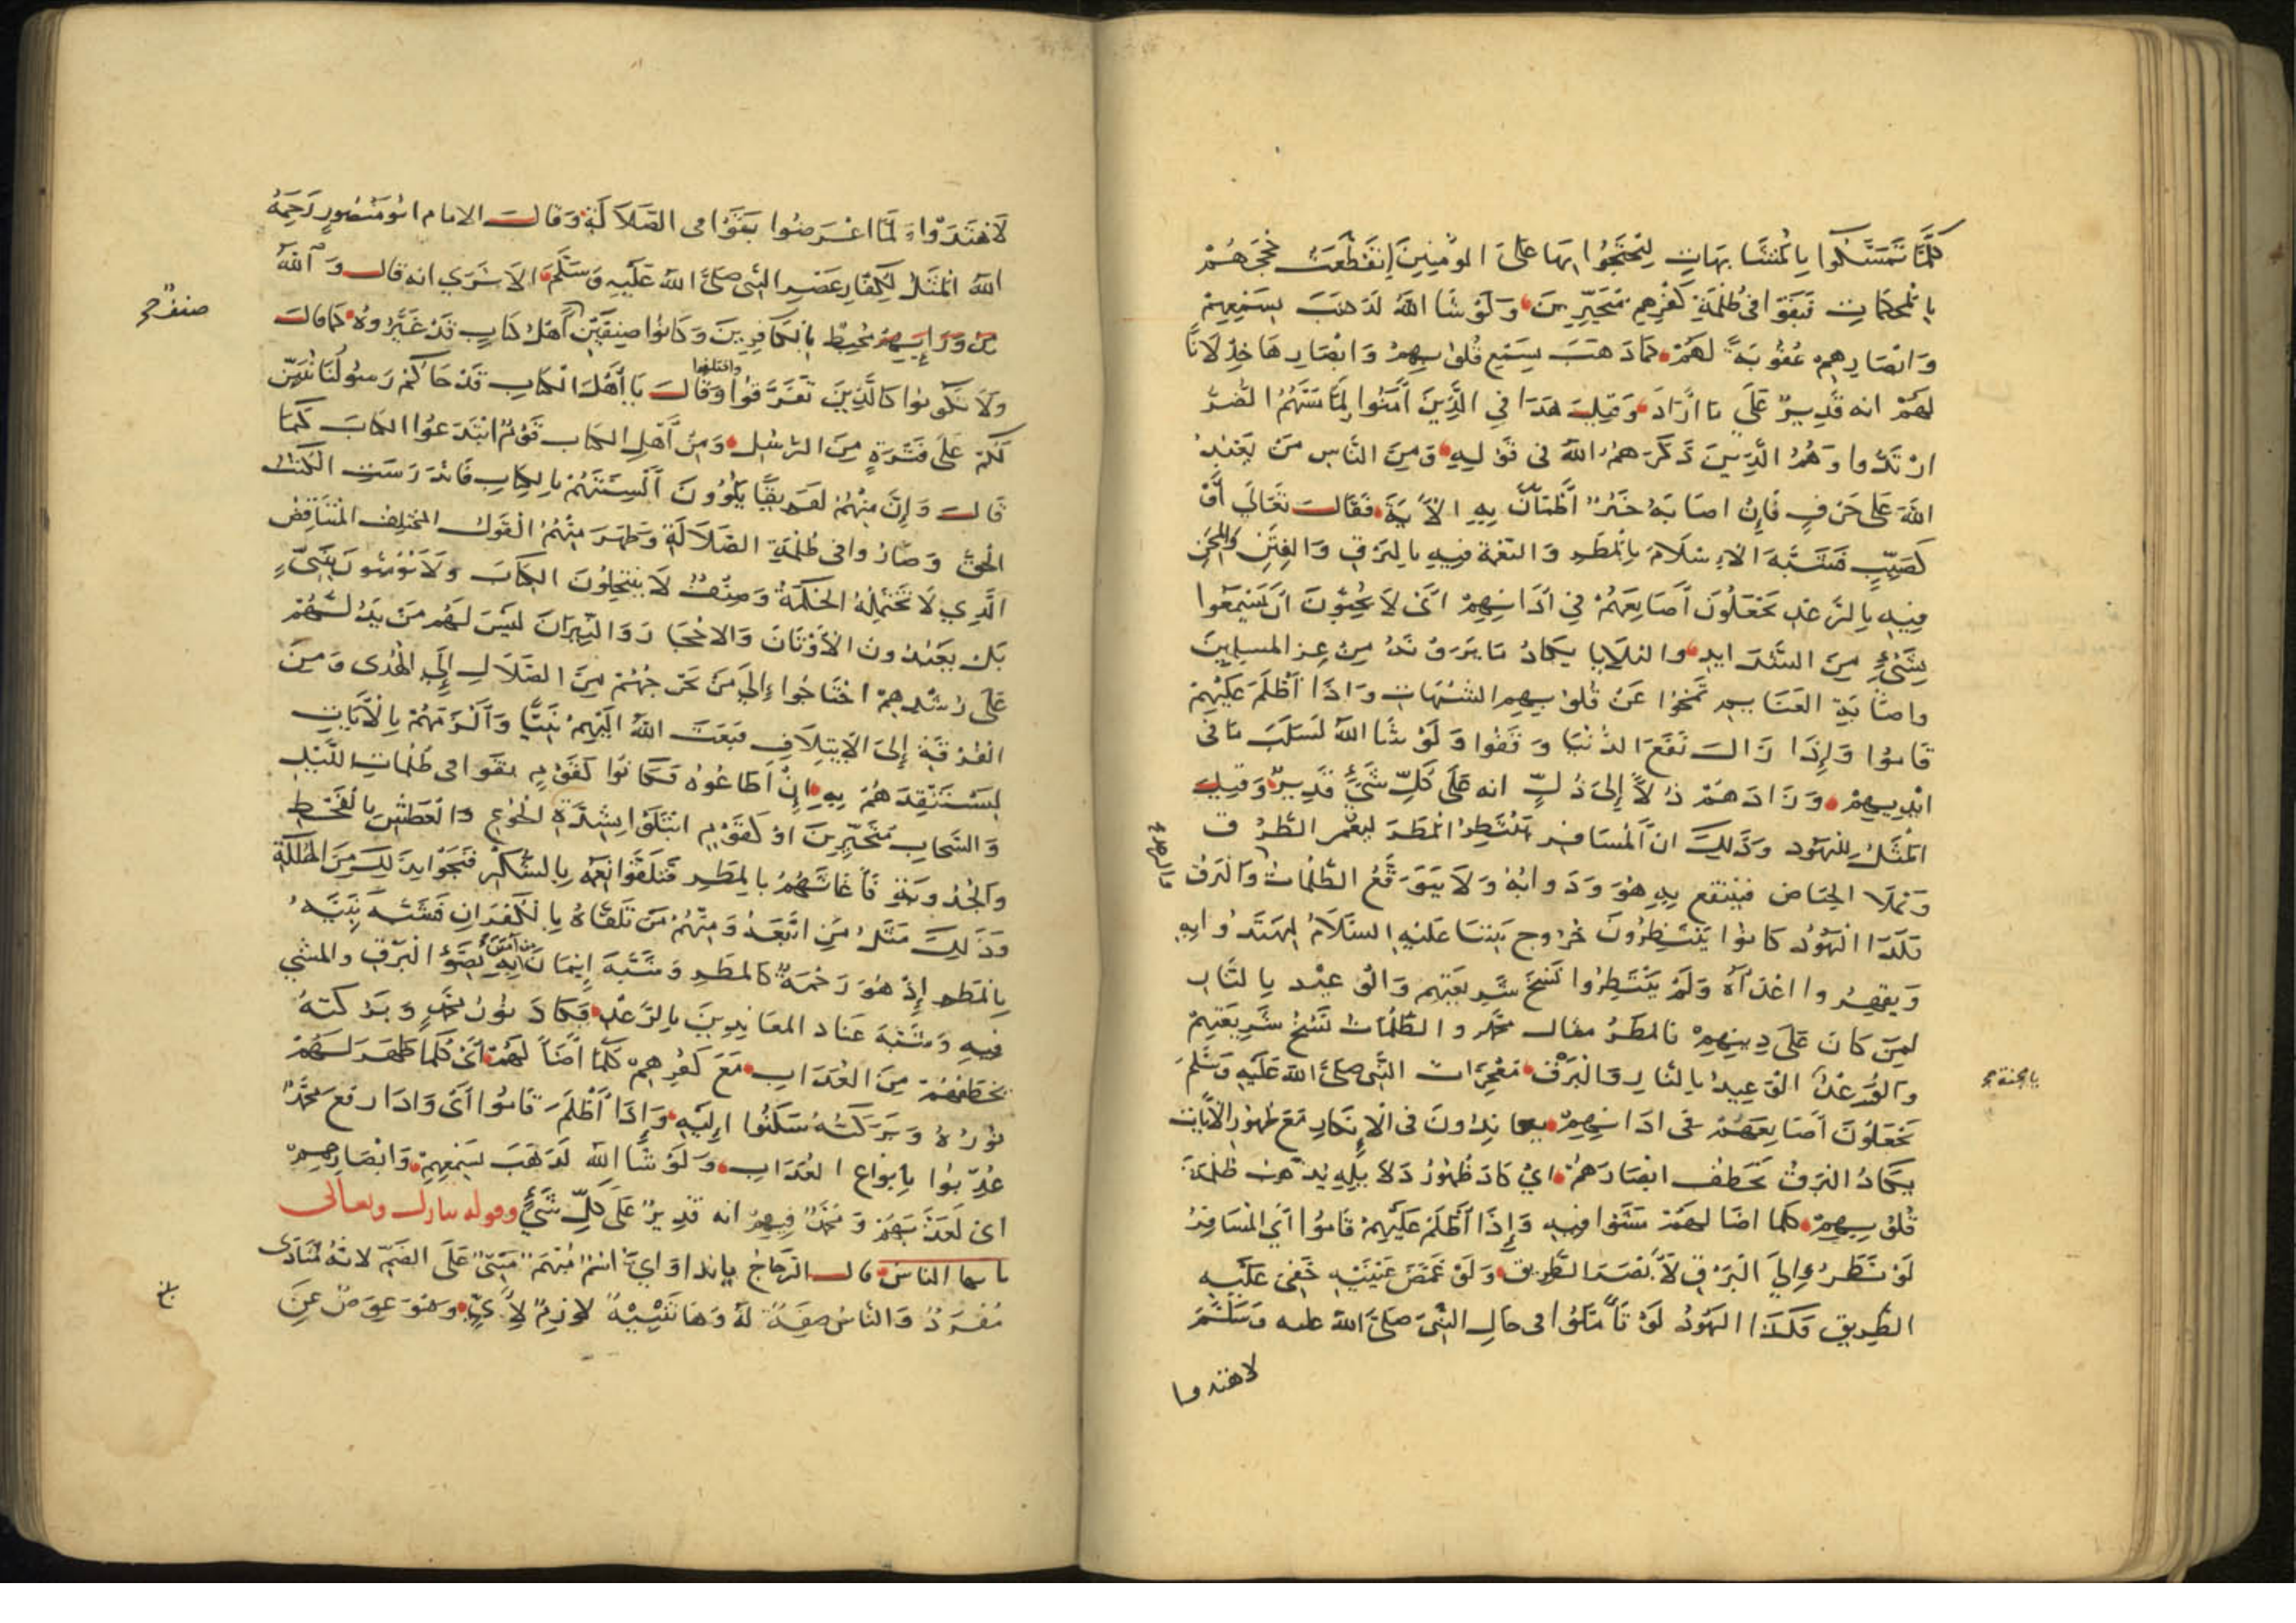 كلما تمسكوا بالمتشابهات ليحتجوا بها على المؤمنين انقطعت حججهم
بالمحكمات فبقوا في ظلمة كفرهم متحيرين ولو شا الله لذهب بسمعهم
وابصارهم عقوبة لهم كما ذهب بسمع قلوبهم وابصارها خذلانا
لهم انه قدير على ما اراد وقيل هذا في الذين امنوا لما مسهم الضر
ارتدوا وهم الذين ذكرهم الله في قوله ومن الناس من يعبد
الله على حرف فان اصابه خير اطمأن به الاية فقال تعالى أو
كصيب فشبه الاسلام بالمطر والنعمة فيه بالبرق والفتن والمحن
فيه بالرعد يجعلون أصابعهم في اذانهم اي لا يحبون ان يسمعوا
بشيء من الشدايد والبلايا يكاد ما يرونه من عز المسلمين
واصابة الغنايم تمحوا عن قلوبهم الشبهات واذا أظلم عليهم
قاموا وإذا زال نفع الدنيا وقفوا ولو شا الله لسلب ما في
ايديهم وزادهم ذلا إلى ذل انه على كل شيء قدير وقيل
المثل لليهود وذلك ان المسافر ينتظر المطر ليعم الطرق
وتملا الحياض فينتفع به هو ودوابه ولا يتوقع الظلمات والبرق
فكذا اليهود كانوا ينتظرون خروج نبينا عليه السلام ليهتدوا به
ويقهروا اعداه ولم ينتظروا نسخ شريعتهم والوعيد بالعذاب
لمن كان على دينهم فالمطر مثال محمد والظلمات نسخ شريعتهم
والرعد الوعيد بالنار والبرق معجزات النبي صلى الله عليه وسلم
يجعلون أصابعهم في اذانهم يعاندون في الانكار مع ظهور الايات
يكاد البرق يخطف ابصارهم اي كاد ظهور دلايله يذهب ظلمة
قلوبهم كلما اضا لهم مشوا فيه وإذا أظلم عليهم قاموا أي المسافر
لو نظر إلى البرق لأبصر الطريق ولو غمض عينيه خفي عليه
الطريق فكذا اليهود لو تأملوا في حال النبي صلى الله عليه وسلم
لاهتدوا
لاهتدوا ولما اعرضوا بقوا في الضلالة وقال الامام ابو منصور رحمه
الله المثل لكفار عصر النبي صلى الله عليه وسلم الا ترى انه قال والله
من ورايهم محيط بالكافرين وكانوا صنفين أهل كتاب قد غيروه كما قال
ولا تكونوا كالذين تفرقوا واختلفوا وقال يا أهل الكتاب قد جاكم رسولنا يبين
لكم على فترة من الرسل ومن أهل الكتاب قوم ابتدعوا الكتاب كما
قال وإن منهم لفريقا يلوون ألسنتهم بالكتاب فاندرست الكتب
الحق وصاروا في ظلمة الضلالة وظهر منهم القول المختلف المتناقض
الذي لا تحتمله الحكمة وصنف لا ينتحلون الكتاب ولا يؤمنون بنبي
بل يعبدون الاوثان والاحجار والنيران ليس لهم من يدلهم
على رشدهم احتاجوا إلى من يخرجهم من الضلال إلى الهدى ومن
الفرقة إلى الايتلاف فبعث الله اليهم نبيا وألزمهم بالآيات
ليستنقذهم به إن أطاعوه فكانوا كقوم بقوا في ظلمات الليل
والسحاب متحيرين او كقوم ابتلوا بشدة الجوع والعطش بالقحط
والجدوبة فأغاثهم بالمطر فتلقوا نعمه بالشكر فنجوا بذلك من الهلكة
وذلك مثل من اتبعه ومنهم من تلقاه بالكفران فشبه نبيه
بالمطر إذ هو رحمة كالمطر وشبه إيمان من آمن به بضوء البرق والمشي
فيه وشبه عناد المعاندين بالرعد فكاد نور محمد وبركته
يخطفهم من العذاب مع كفرهم كلما أضا لهم أي كلما ظهر لهم
نوره وبركته سكنوا إليه وإذا أظلم قاموا أي واذا رفع محمد
عذبوا بأنواع العذاب ولو شا الله لذهب بسمعهم وابصارهم
اي لعذبهم ومحمد فيهم انه قدير على كل شيء وقوله تبارك وتعالى
يا ايها الناس قال الزجاج يا ندا وأي اسم مبهم مبني على الضم لانه منادى
مفرد والناس صفة له وها تنبيه لازم لأي وهو عوض عن